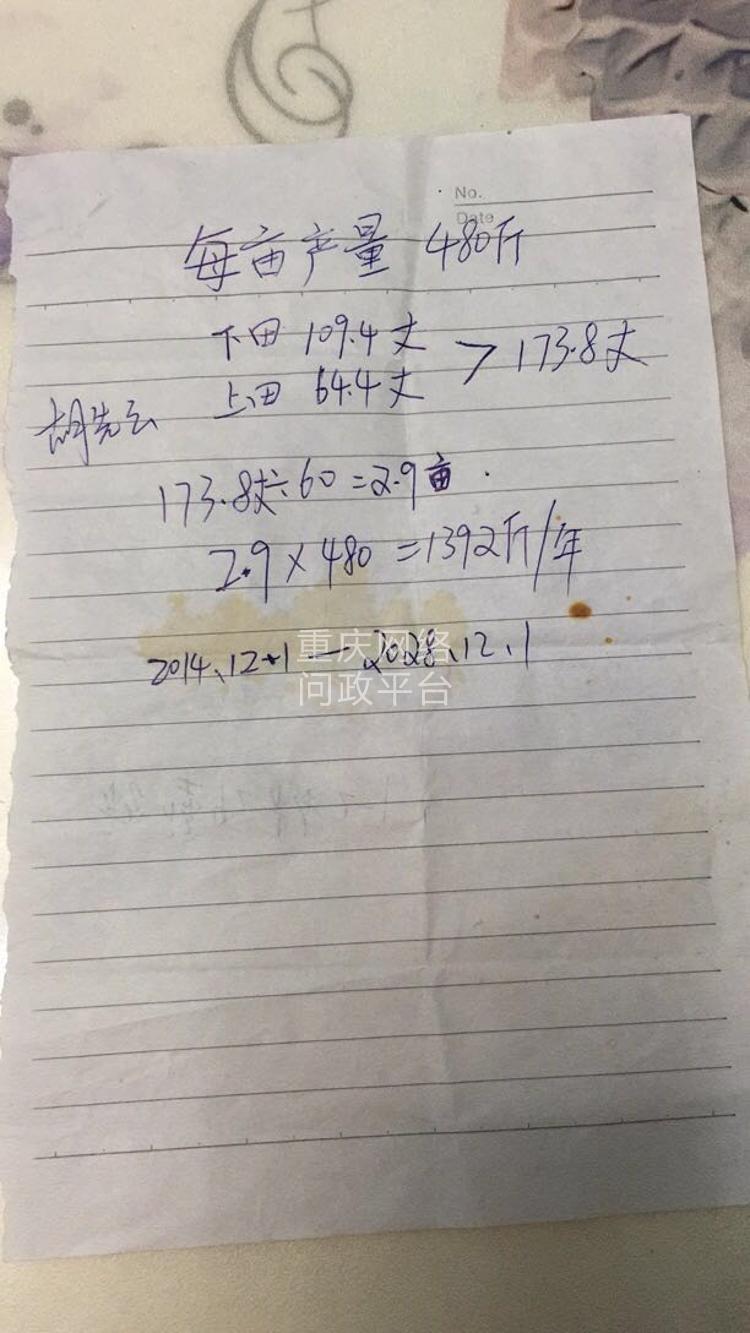 No.
Date
每亩产量 480斤
下田 109.4丈
上田 64.4丈 > 173.8丈
胡先云
173.8丈÷60=2.9亩.
2.9×480=1392斤/年
2014、12、1—2028、12、1
重庆网络
问政平台